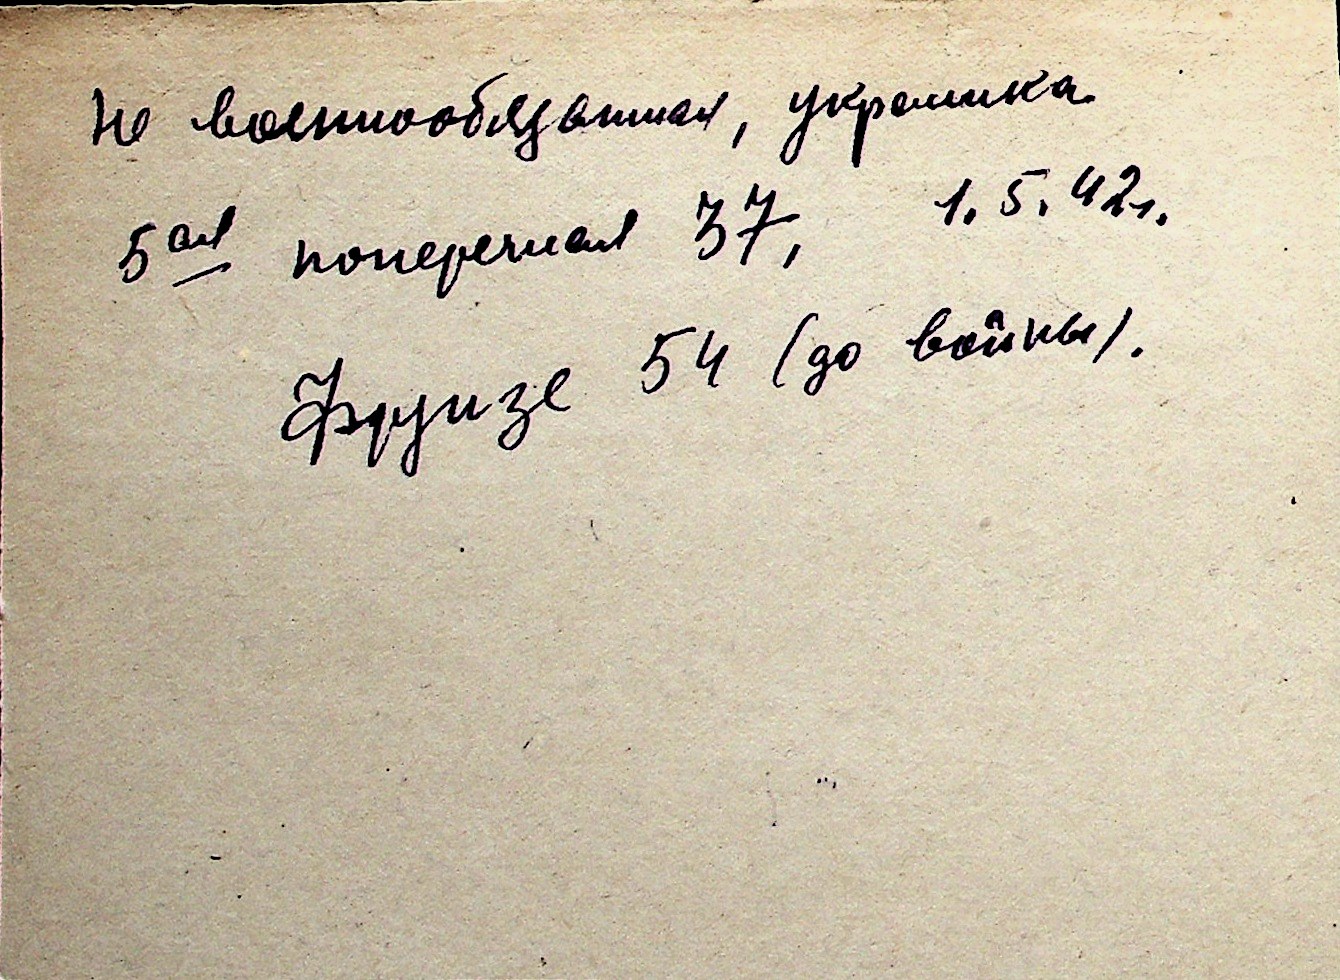 Не военнообязанная, украинка
5ая поперечная 37, 1.5.42г.
Фрунзе 54 (до войны).